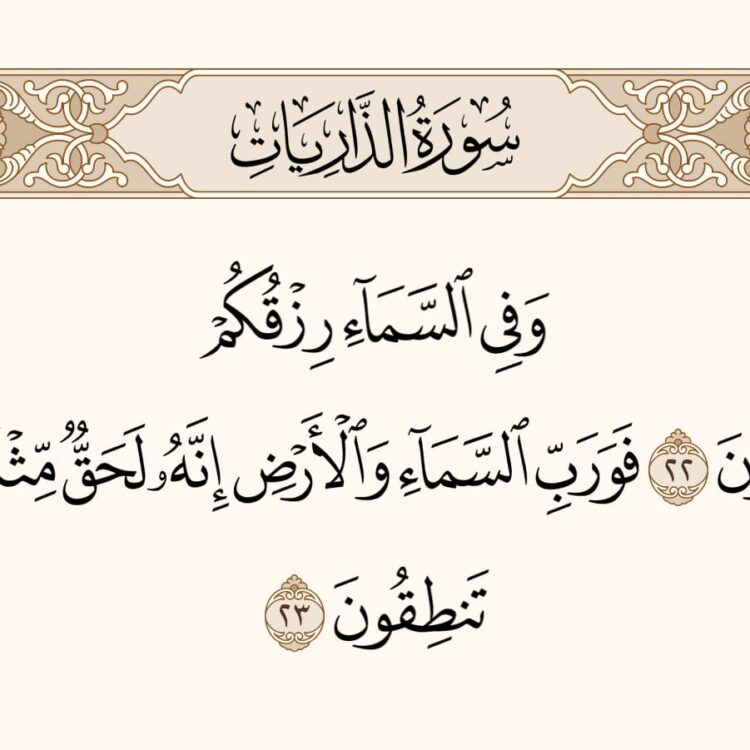 سُورَةُ الذَّارِيَاتِ
وَفِى ٱلسَّمَآءِ رِزْقُكُمْ
ونَ ٢٢ فَوَرَبِّ ٱلسَّمَآءِ وَٱلْأَرْضِ إِنَّهُۥ لَحَقٌّ مِّثْ
تَنطِقُونَ ٢٣